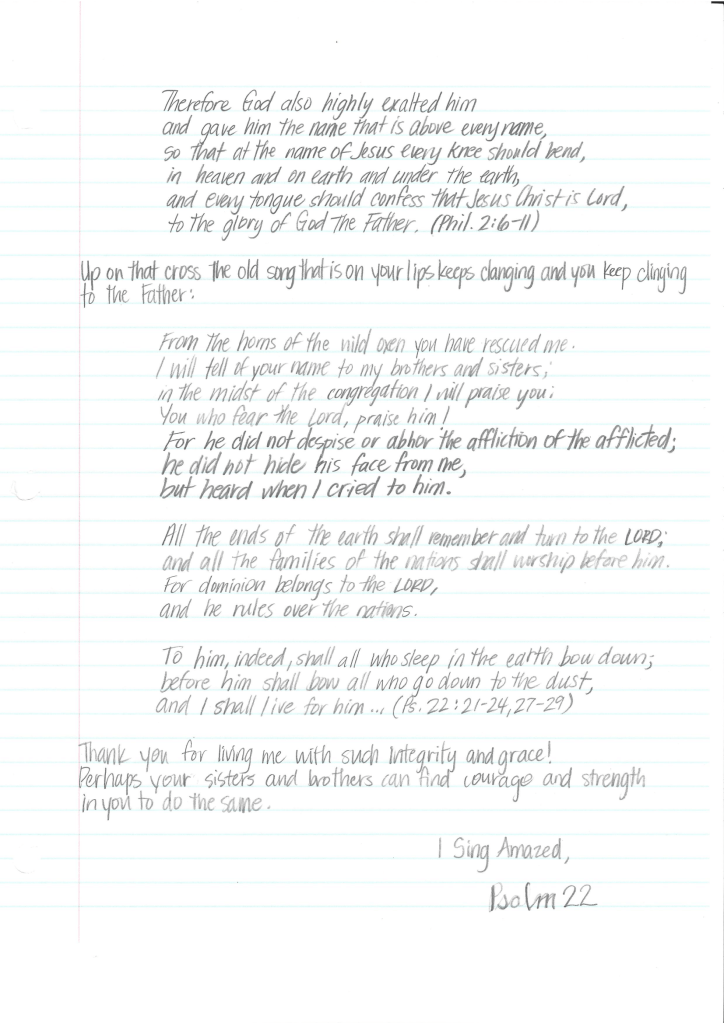 Therefore God also highly exalted him
and gave him the name that is above every name,
so that at the name of Jesus every knee should bend,
in heaven and on earth and under the earth,
and every tongue should confess that Jesus Christ is Lord,
to the glory of God the Father. (Phil. 2:6-11)
Up on that cross the old song that is on your lips keeps clanging and you keep clinging
to the Father:
From the horns of the wild oxen you have rescued me.
I will tell of your name to my brothers and sisters;
in the midst of the congregation I will praise you:
You who fear the Lord, praise him!
For he did not despise or abhor the affliction of the afflicted;
he did not hide his face from me,
but heard when I cried to him.
All the ends of the earth shall remember and turn to the LORD;
and all the families of the nations shall worship before him.
For dominion belongs to the LORD,
and he rules over the nations.
To him, indeed, shall all who sleep in the earth bow down;
before him shall bow all who go down to the dust,
and I shall live for him... (Ps. 22:21-24,27-29)
Thank you for living me with such integrity and grace!
Perhaps your sisters and brothers can find courage and strength
in you to do the same.
I Sing Amazed,
Psalm 22